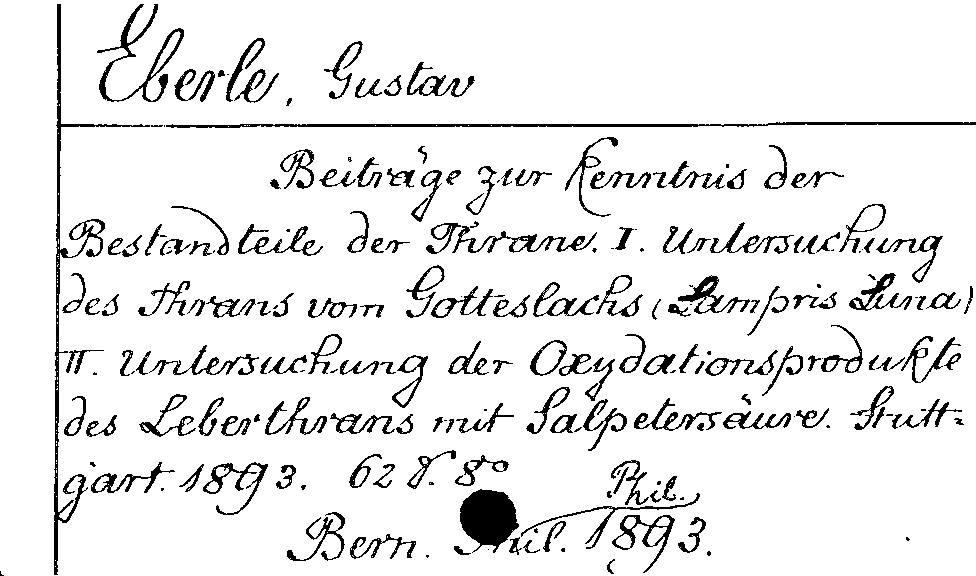 Eberle, Gustav
Beiträge zur Kenntnis der
Bestandteile der Thrane. I. Untersuchung
des Thrans vom Gotteslachs (Lampris Luna)
II. Untersuchung der Oxydationsprodukte
des Leberthrans mit Salpetersäure. Stutt-
gart. 1893. 62 S. 8°
Phil.
Bern. Phil. 1893.